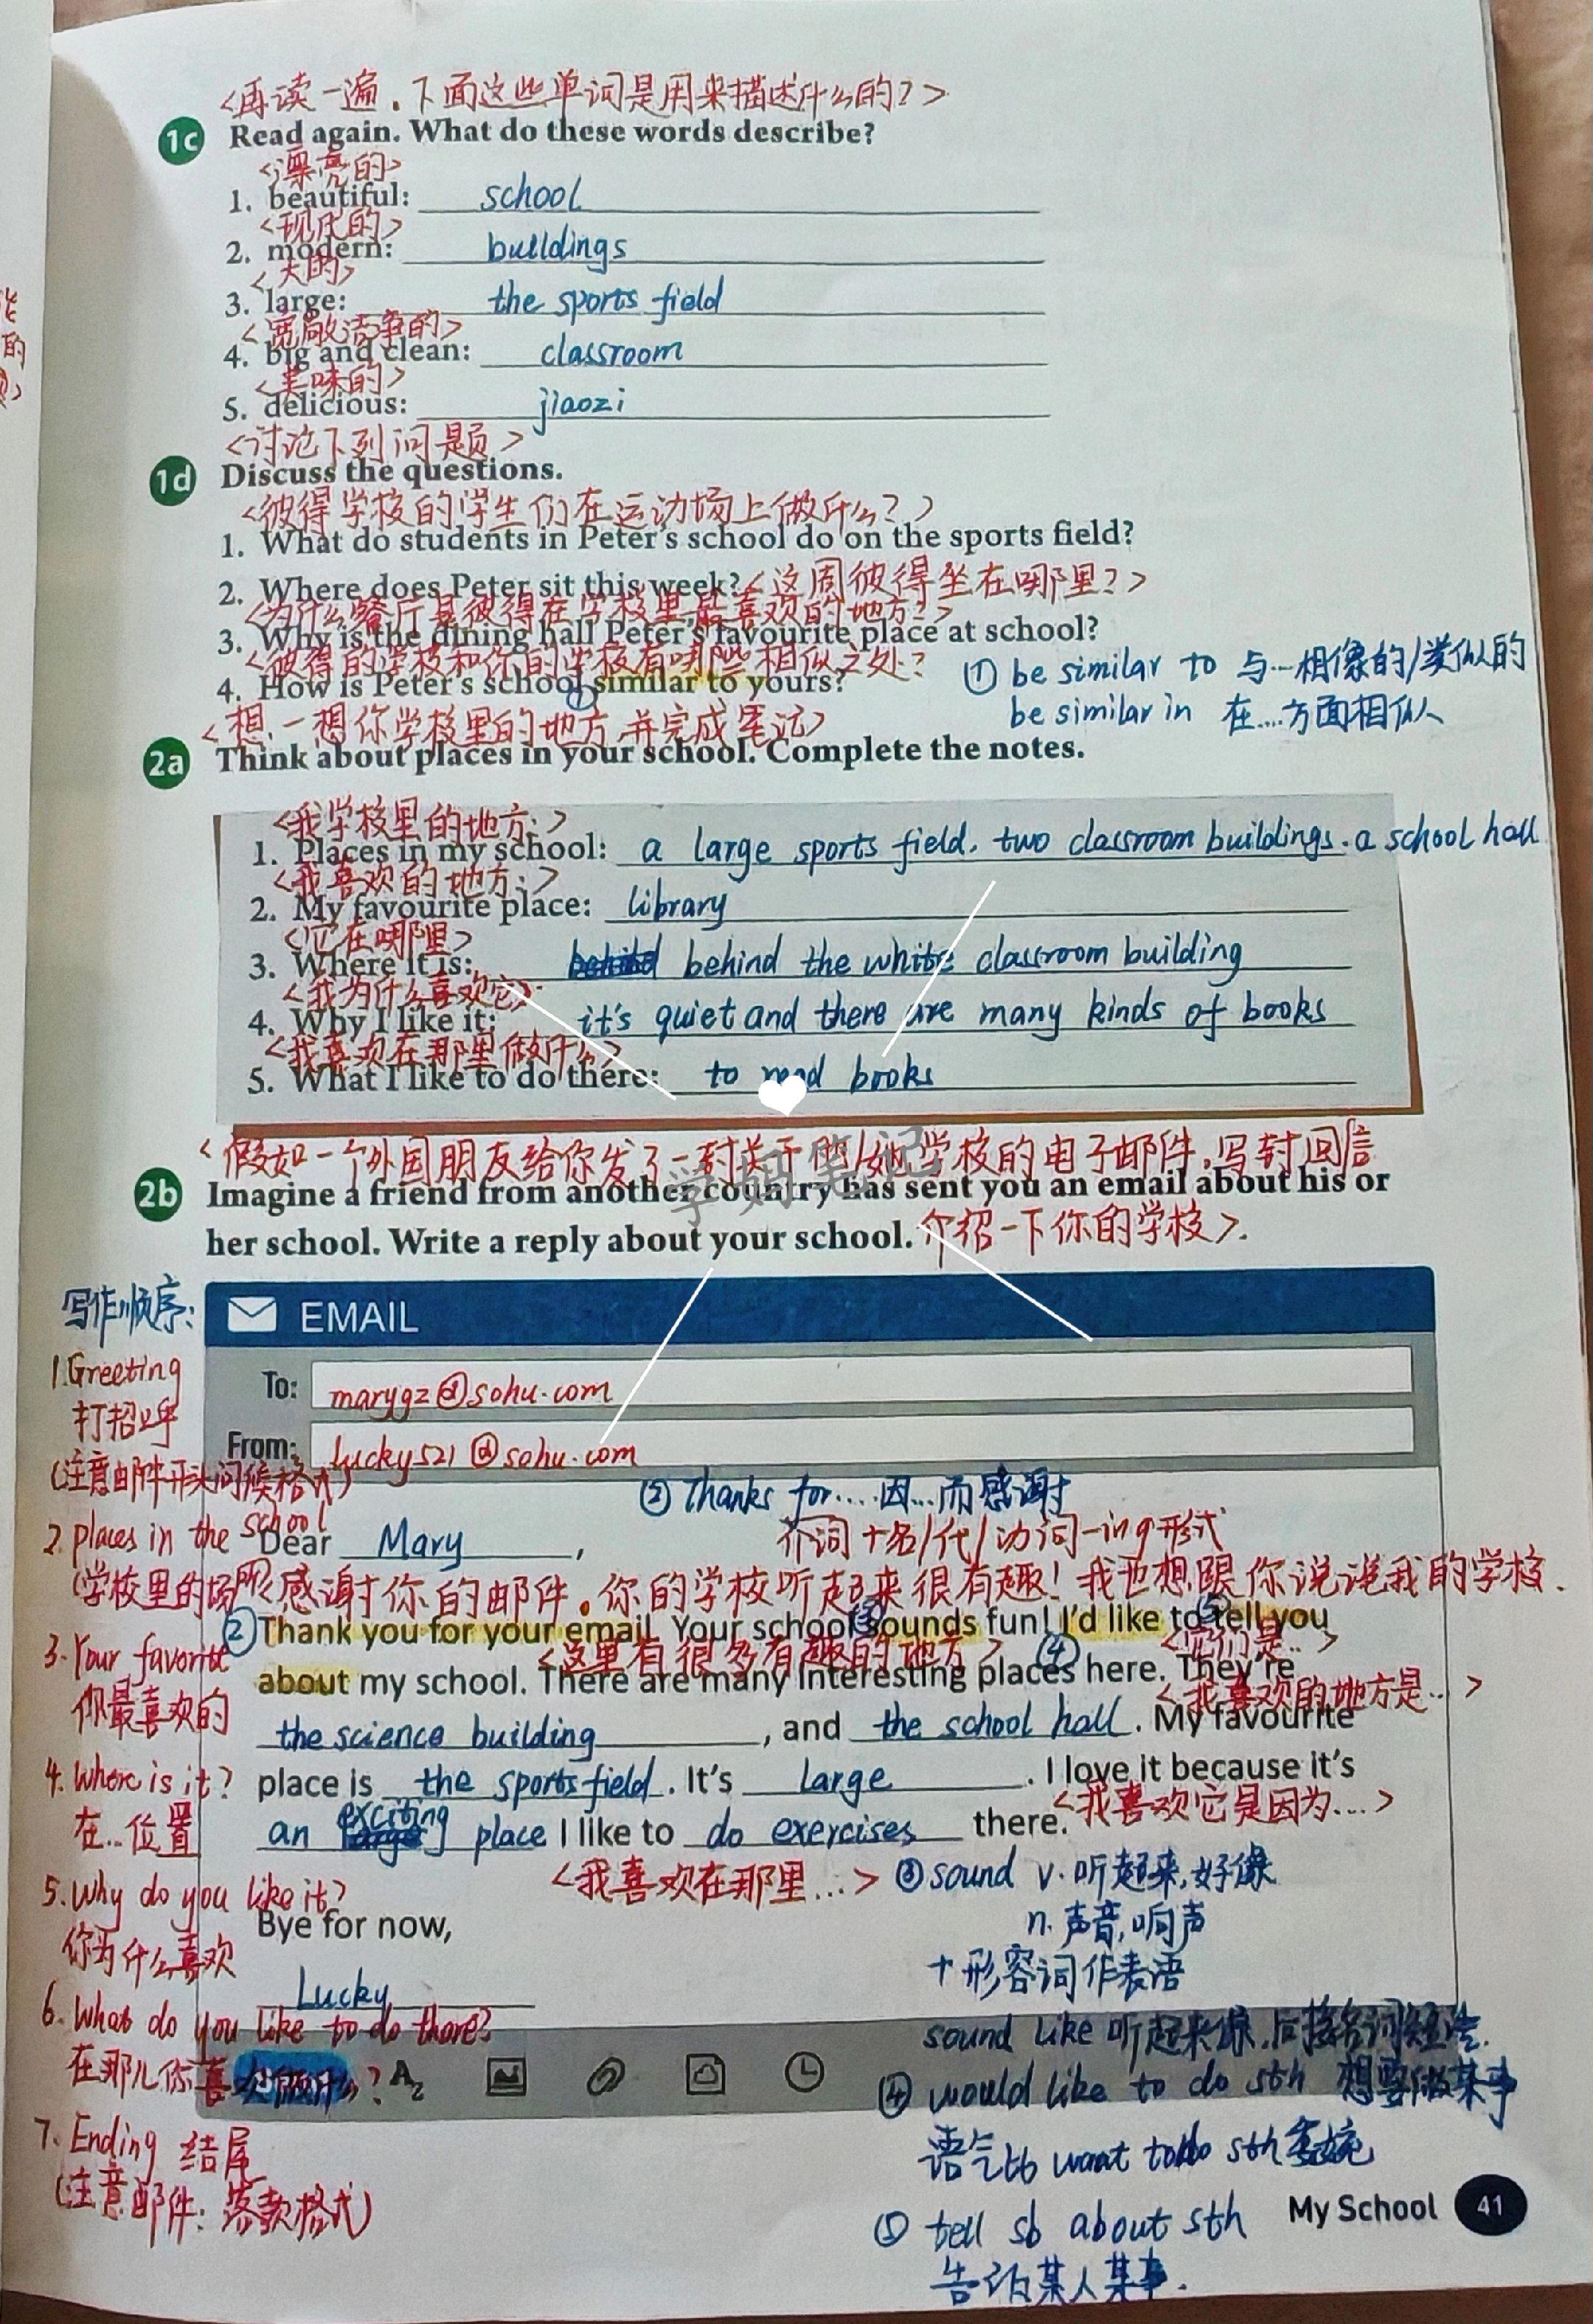 <再读一遍.下面这些单词是用来描述什么的?>
1c Read again. What do these words describe?
<漂亮的>
1. beautiful: school
<现代的>
2. modern: buildings
<大的>
3. large: the sports field
<宽敞洁净的>
4. big and clean: classroom
<美味的>
5. delicious: jiaozi
<讨论下列问题>
1d Discuss the questions.
<彼得学校的学生们在运动场上做什么?>
1. What do students in Peter's school do on the sports field?
2. Where does Peter sit this week? <这周彼得坐在哪里?>
<为什么餐厅是彼得在学校里最喜欢的地方?>
3. Why is the dining hall Peter's favourite place at school?
<彼得的学校和你的学校有哪些相似之处?
4. How is Peter's school similar to yours?
① be similar to 与…相像的/类似的
be similar in 在....方面相似
<想一想你学校里的地方,并完成笔记>
2a Think about places in your school. Complete the notes.
<我学校里的地方:>
1. Places in my school: a large sports field, two classroom buildings. a school hall
<我喜欢的地方:>
2. My favourite place: library
<它在哪里>
3. Where it is: behind the white classroom building
<我为什么喜欢它>
4. Why I like it: it's quiet and there are many kinds of books
<我喜欢在那里做什么>
5. What I like to do there: to read books
学妈笔记
<假如一个外国朋友给你发了一封关于他/她学校的电子邮件,写封回信
2b Imagine a friend from another country has sent you an email about his or
her school. Write a reply about your school. 介绍一下你的学校>.
写作顺序:
EMAIL
1.Greeting
打招呼
(注意邮件开头问候格式)
To: marygz@sohu.com
From: lucky521@sohu.com
② Thanks for....因...而感谢
介词+名/代/动词-ing形式
2. places in the school
(学校里的场所)
Dear Mary,
<感谢你的邮件。你的学校听起来很有趣!我也想跟你说说我的学校.
②Thank you for your email. Your school ③sounds fun! I'd like to ⑤tell you
<这里有很多有趣的地方> ④ <它们是..>
about my school. There are many interesting places here. They're
<我喜欢的地方是...>
the science building, and the school hall. My favourite
place is the sports field. It's large. I love it because it's
<我喜欢它是因为....>
an exciting place I like to do exercises there.
<我喜欢在那里...>
3. Your favorite
你最喜欢的
4. Where is it?
在...位置
5. Why do you like it?
你为什么喜欢
Bye for now,
Lucky
6. What do you like to do there?
在那儿你喜欢做什么?
7. Ending 结尾
(注意邮件:落款格式)
③sound v.听起来,好像
n.声音,响声
+形容词作表语
sound like 听起来像.后接名词短语.
④ would like to do sth 想要做某事
语气比 want to do sth 委婉
⑤ tell sb about sth
告诉某人某事.
My School 41